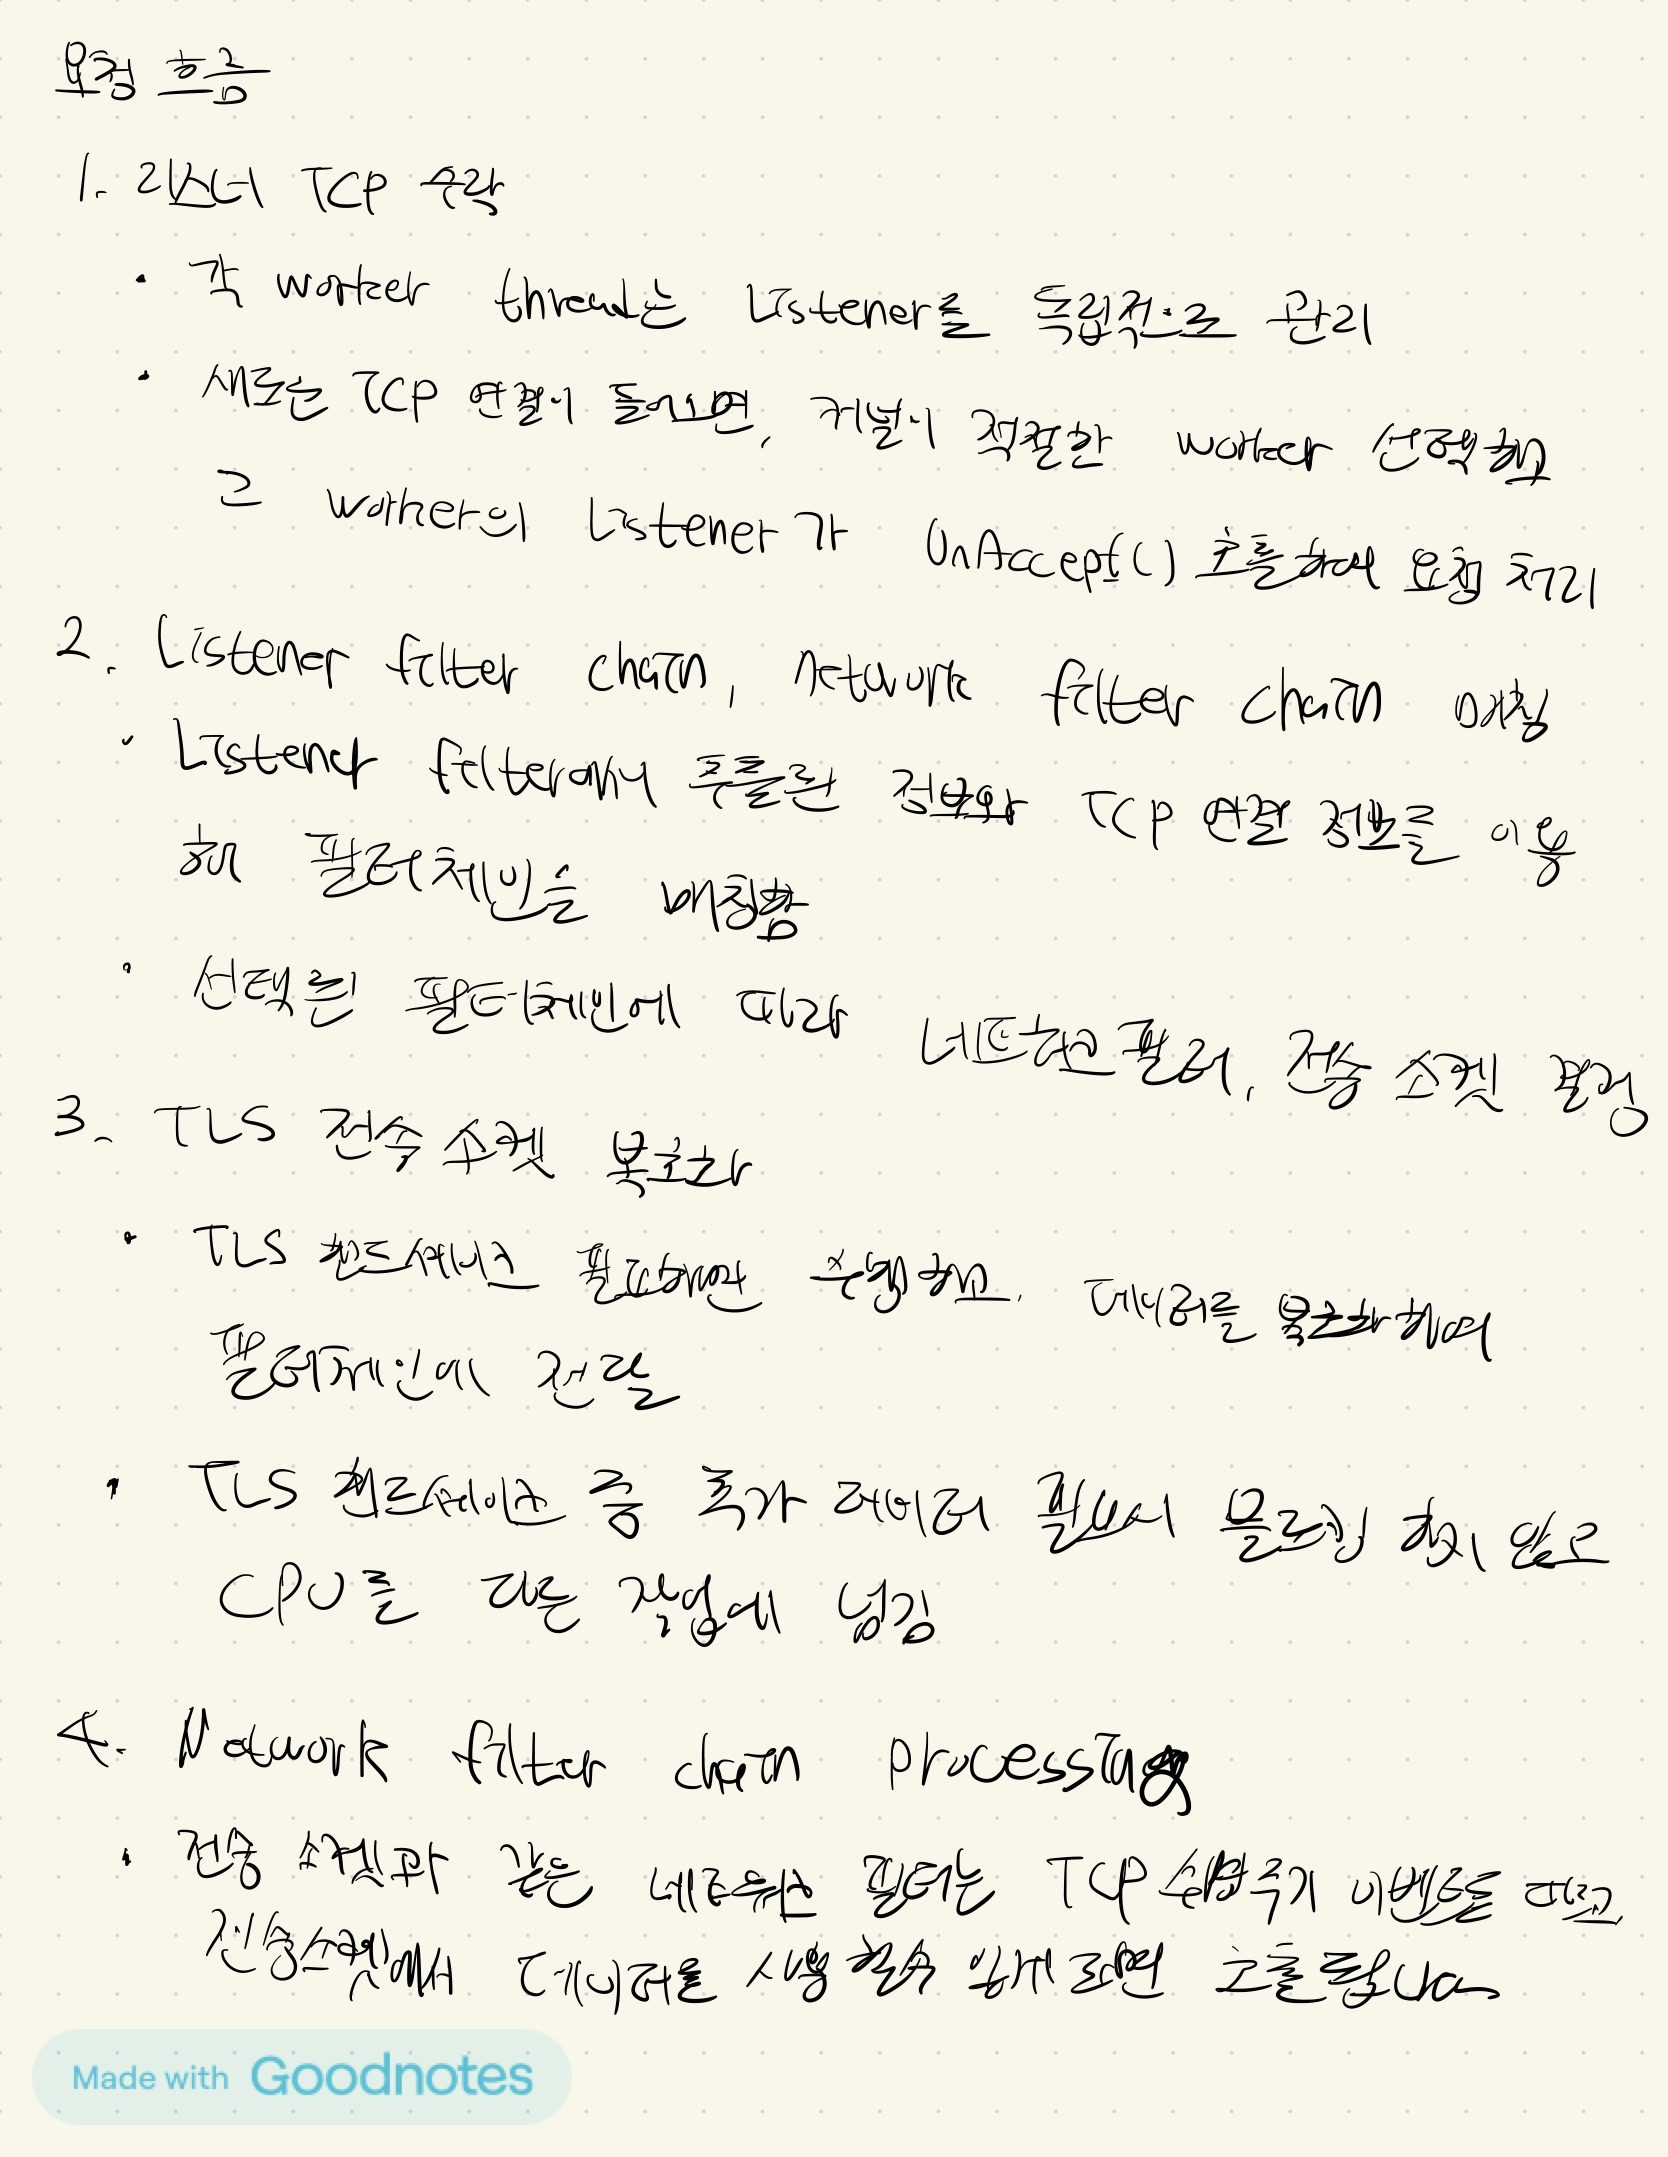 요청 흐름
1. 리스너 TCP 수락
• 각 worker thread는 Listener를 독립적으로 관리
• 새로운 TCP 연결이 들어오면, 커널이 적절한 worker 선택하고
그 worker의 Listener가 OnAccept() 호출하여 요청 처리
2. Listener filter chain, network filter chain 매칭
• Listener filter에서 추출된 정보와 TCP 연결 정보를 이용
해 필터체인을 매칭함
• 선택된 필터체인에 따라 네트워크 필터, 전송 소켓 결정
3. TLS 전송 소켓 복호화
• TLS 핸드셰이크 필요하면 수행하고, 데이터를 복호화하여
필터체인에 전달
• TLS 핸드셰이크 중 추가 데이터 필요시 블로킹 하지 않고
CPU를 다른 작업에 넘김
4. Network filter chain processing
• 전송 소켓과 같은 네트워크 필터는 TCP 수명주기 이벤트를 따르고
전송소켓에서 데이터를 사용할 수 있게 되면 호출됩니다
Made with Goodnotes